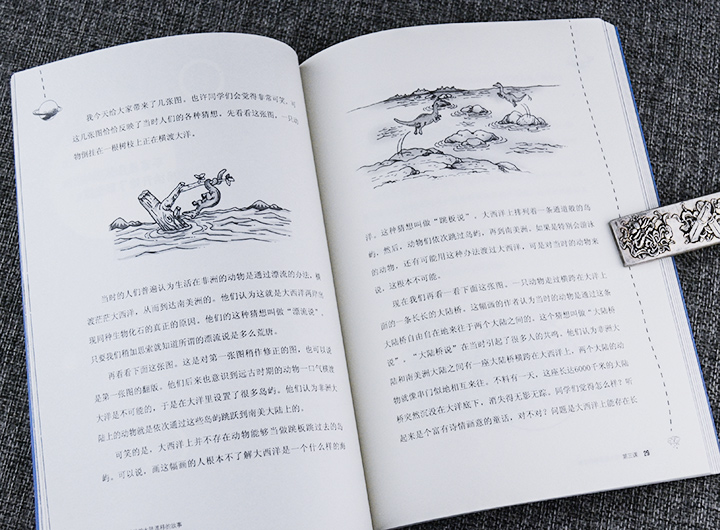 我今天给大家带来了几张图，也许同学们会觉得非常可笑，可
这几张图恰恰反映了当时人们的各种猜想，先看看这张图，一只动
物倒挂在一根树枝上正在横渡大洋。
当时的人们普遍认为生活在非洲的动物是通过漂流的办法，横
渡茫茫大西洋，从而到达南美洲的。他们认为这就是大西洋两岸出
现同种生物化石的真正的原因。他们的这种猜想叫做“漂流说”。
只要我们稍加思索就知道所谓的漂流说是多么荒唐。
再看看下面这张图，这是对第一张图稍作修正的图，也可以说
是第一张图的翻版。他们后来也意识到远古时期的动物一口气横渡
大洋是不可能的，于是在大洋里设置了很多岛屿。他们认为非洲大
陆上的动物就是依次通过这些岛屿跳跃到南美大陆上的。
可笑的是，大西洋上并不存在动物能够当做跳板跳过去的岛
屿。可以说，画这幅画的人根本不了解大西洋是一个什么样的海
的故事
洋。这种猜想叫做“跳板说”，大西洋上排列着一条通道般的岛
屿，然后，动物们依次跳过岛屿，再到南美洲。如果是特别会游泳
的动物，还有可能用这种办法渡过大西洋，可是对当时的动物来
说，这根本不可能。
现在我们再看一看下面这张图，一只动物走过横跨在大洋上
面的一条长长的大陆桥。这幅画的作者认为当时的动物是通过这条
大陆桥自由自在地来往于两个大陆之间的。这个猜想叫做“大陆桥
说”。“大陆桥说”在当时引起了很多人的共鸣。他们认为非洲大
陆和南美洲大陆之间有一座大陆桥横跨在大西洋上，两个大陆的动
物就像串门似地相互来往。不料有一天，这座长达6000千米的大陆
桥突然沉没在大洋底下，消失得无影无踪。同学们觉得怎么样？听
起来是个富有诗情画意的童话，对不对？问题是大西洋上能存在长
第三课 29